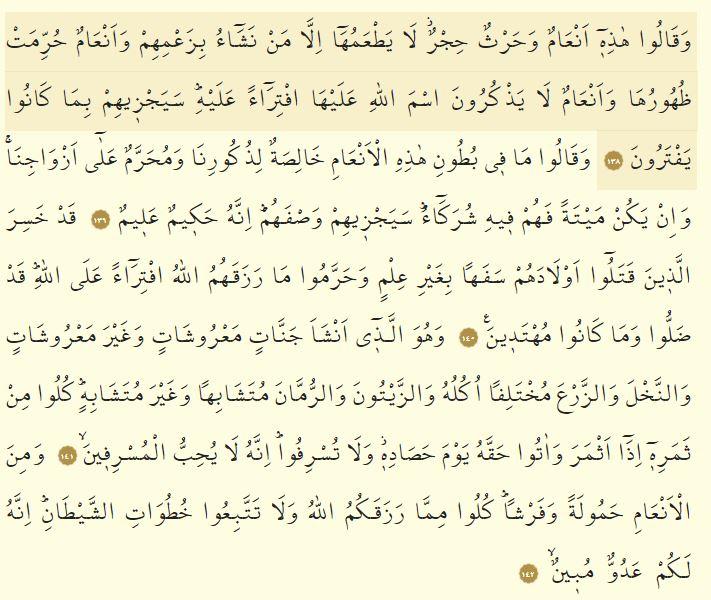 وَقَالُوا هٰذِهِٓ اَنْعَامٌ وَحَرْثٌ حِجْرٌۘ لَا يَطْعَمُهَٓا اِلَّا مَنْ نَشَٓاءُ بِزَعْمِهِمْ وَاَنْعَامٌ حُرِّمَتْ
ظُهُورُهَا وَاَنْعَامٌ لَا يَذْكُرُونَ اسْمَ اللّٰهِ عَلَيْهَا افْتِرَٓاءً عَلَيْهِۜ سَيَجْزٖيهِمْ بِمَا كَانُوا
يَفْتَرُونَ ﴿١٣٨﴾ وَقَالُوا مَا فٖى بُطُونِ هٰذِهِ الْاَنْعَامِ خَالِصَةٌ لِذُكُورِنَا وَمُحَرَّمٌ عَلٰٓى اَزْوَاجِنَاۚ
وَاِنْ يَكُنْ مَيْتَةً فَهُمْ فٖيهِ شُرَكَٓاءُۜ سَيَجْزٖيهِمْ وَصْفَهُمْۜ اِنَّهُ حَكٖيمٌ عَلٖيمٌ ﴿١٣٩﴾ قَدْ خَسِرَ
الَّذٖينَ قَتَلُٓوا اَوْلَادَهُمْ سَفَهًا بِغَيْرِ عِلْمٍ وَحَرَّمُوا مَا رَزَقَهُمُ اللّٰهُ افْتِرَٓاءً عَلَى اللّٰهِۜ قَدْ
ضَلُّوا وَمَا كَانُوا مُهْتَدٖينَۚ ﴿١٤٠﴾ وَهُوَ الَّذٖٓى اَنْشَاَ جَنَّاتٍ مَعْرُوشَاتٍ وَغَيْرَ مَعْرُوشَاتٍ
وَالنَّخْلَ وَالزَّرْعَ مُخْتَلِفًا اُكُلُهُ وَالزَّيْتُونَ وَالرُّمَّانَ مُتَشَابِهًا وَغَيْرَ مُتَشَابِهٍۜ كُلُوا مِنْ
ثَمَرِهٖٓ اِذَٓا اَثْمَرَ وَاٰتُوا حَقَّهُ يَوْمَ حَصَادِهٖۘ وَلَا تُسْرِفُواۜ اِنَّهُ لَا يُحِبُّ الْمُسْرِفٖينَۙ ﴿١٤١﴾ وَمِنَ
الْاَنْعَامِ حَمُولَةً وَفَرْشًاۜ كُلُوا مِمَّا رَزَقَكُمُ اللّٰهُ وَلَا تَتَّبِعُوا خُطُوَاتِ الشَّيْطَانِۜ اِنَّهُ
لَكُمْ عَدُوٌّ مُبٖينٌۙ ﴿١٤٢﴾